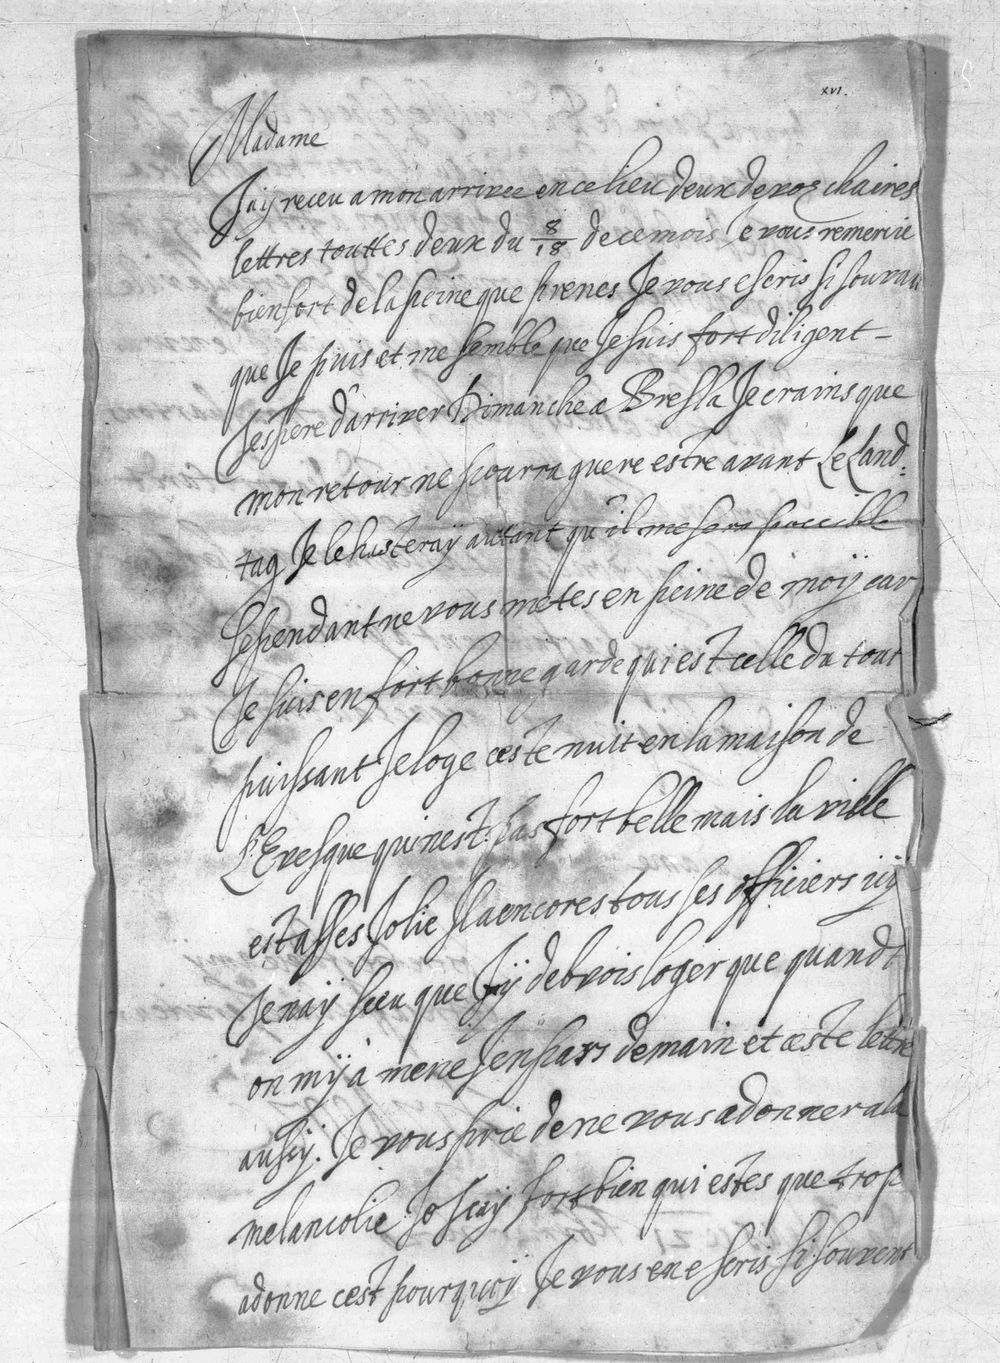 xvi.
Madame
Jay receu a mon arrivee en ce lieu deux de vos chaires
lettres touttes deux du 8/18 de ce mois Je vous remercie
bien fort de la peine que prenes Je vous escris si souvan
que Je puis et me semble que Je suis fort diligent –
Jespere d'arriver Dimanche a Bresla Je crains que
mon retour ne pourra guere estre avant Le Land=
tag Je le hasteraÿ autant qu'il me sera possible
Sependant ne vous metes en peine de moÿ car
Je suis en fort bonne garde qui est celle du tout
puissant Je loge ceste nuit en la maison de
L'Evesque qui nest pas fort belle mais la ville
est asses Jolie Il a encores tous ses officiers icy
Je naÿ sceu que Jÿ debvois loger que quandt
on mÿ a mene Jen pars demain et ceste lettre
aussÿ. Je vous prie de ne vous adonner a la
melancolie Je scay fort bien qui estes que trop
adonne cest pourquoÿ Je vous en escris si souvent